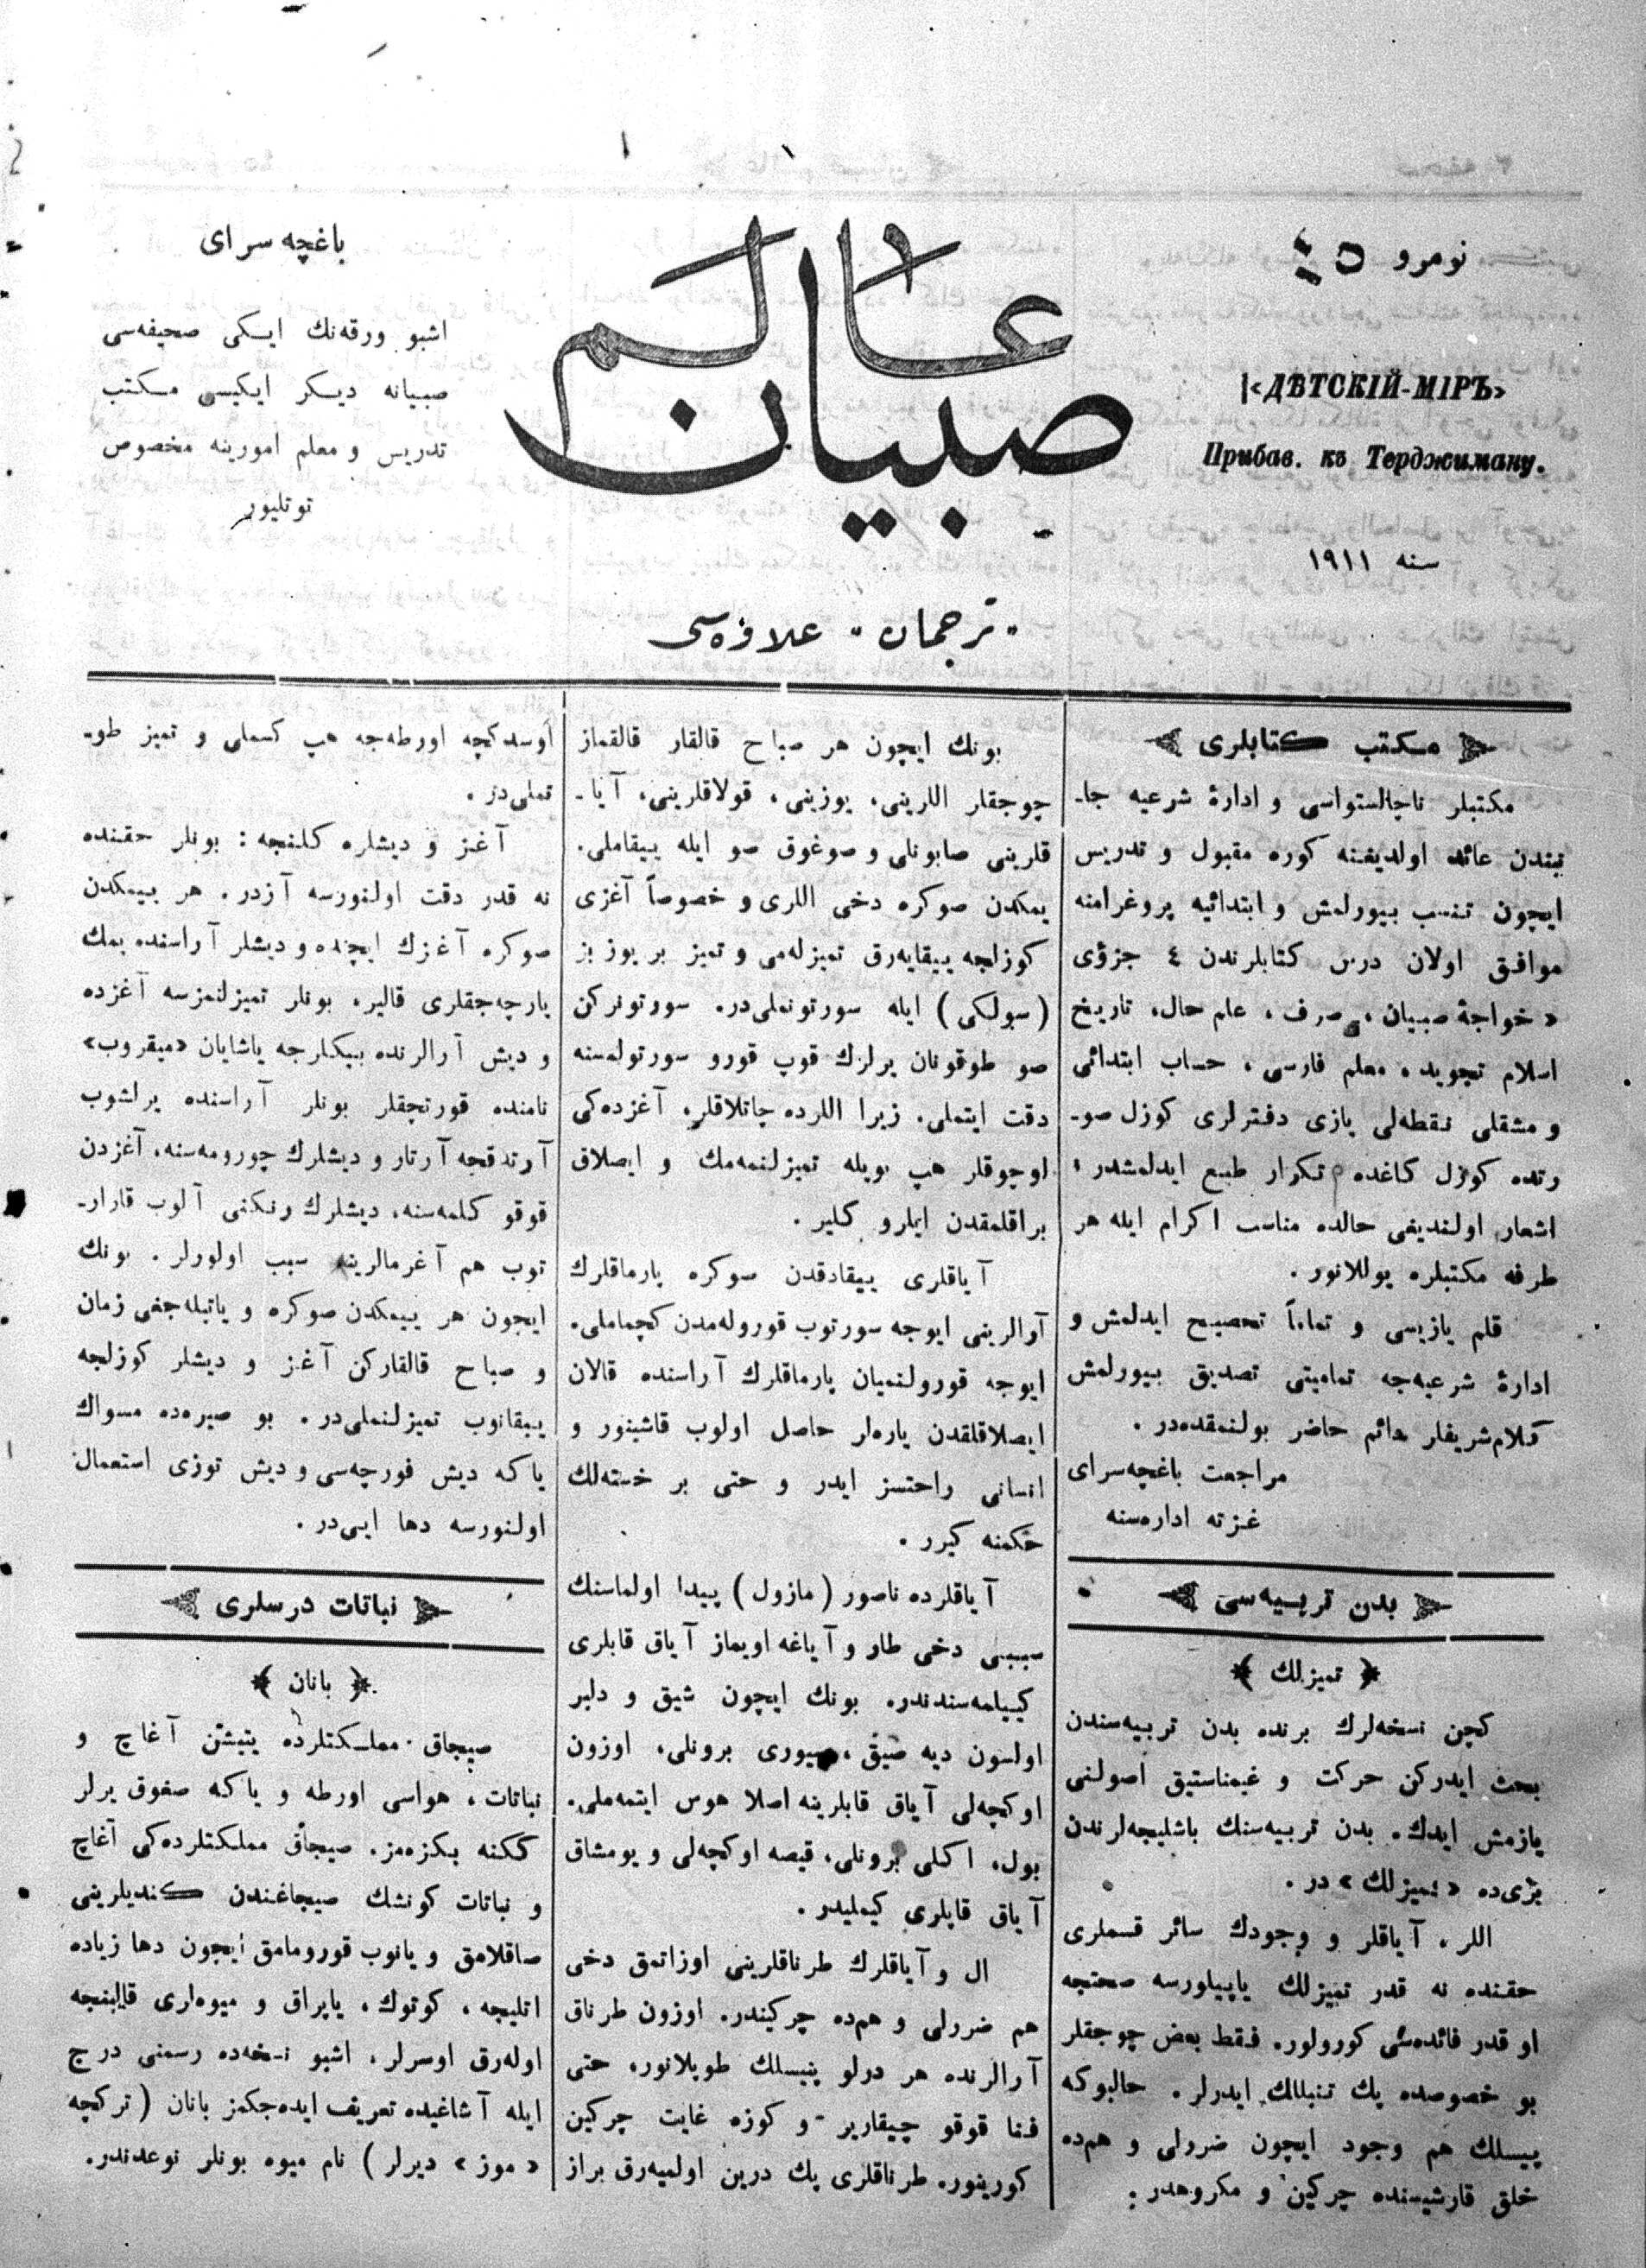 نومرو ٤٥
«ДѢТСКІЙ-МІРЪ»
Прибав. къ Терджиману.
سنه ١٩١١
عالم صبيان
باغچه سراى
اشبو ورقه‌نك ايكى صحيفه‌سى
صبيانه ديكر ايكيسى مكتب
تدريس و معلم امورينه مخصوص
توتليور
"ترجمان" علاوه‌سى
مكتب كتابلرى
مكتبلر ناچالستواسى و ادارۀ شرعيه جا-
نبندن عائد اولديغنه كوره مقبول و تدريس
ايچون تنسب بيورلمش و ابتدائيه پروغرامنه
موافق اولان درس كتابلرندن ٤ جزؤى
«خواجۀ صبيان، صرف، علم حال، تاريخ
اسلام تجويد، معلم فارسى، حساب ابتدائى
و مشقلى نقطه‌لى يازى دفترلرى كوزل صو-
رتده كوزل كاغده تكرار طبع ايدلمشدر؛
اشعار اولنديغى حالده مناسب اكرام ايله هر
طرفه مكتبلره يوللانور.
قلم يازيسى و تماماً تصحيح ايدلمش و
ادارۀ شرعيه‌جه تماميتى تصديق بيورلمش
كلام‌شريفلر دائم حاضر بولنمقده‌در.
مراجعت باغچه‌سراى
غزته اداره‌سنه
بدن تربيه‌سى
﴿ تميزلك ﴾
كچن نسخه‌لرك برنده بدن تربيه‌سندن
بحث ايدركن حركت و غيمناستيق اصولنى
يازمش ايدك. بدن تربيه‌سنك باشليجه‌لرندن
برى‌ده «تميزلك» در.
اللر، آياقلر و وجودك سائر قسملرى
حقنده نه قدر تميزلك ياپيلورسه صحتجه
او قدر فائده‌سى كورولور. فقط بعض چوجقلر
بو خصوصده پك تنبللك ايدرلر. حالبوكه
پيسلك هم وجود ايچون ضررلى و هم‌ده
خلق قارشيسنده چركين و مكروهدر.
بونك ايچون هر صباح قالقار قالقماز
چوجقلر اللرينى، يوزينى، قولاقلرينى، آيا-
قلرينى صابونلى و صوغوق صو ايله ييقاملى.
يمكدن صوكره دخى اللرى و خصوصاً آغزى
كوزلجه ييقايه‌رق تميزله‌مى و تميز بر يوز بز
(سولكى) ايله سورتونملى‌در. سورتونركن
صو طوقونان يرلرك قوپ قورو سورتولمسنه
دقت ايتملى. زيرا اللرده چاتلاقلر، آغزده‌كى
اوچوقلر هپ بويله تميزلنمه‌مك و ايصلاق
براقلمقدن ايلرو كلير.
آياقلرى ييقادقدن صوكره پارماقلرك
آرالرينى ايوجه سورتوب قوروله‌مدن كچماملى.
ايوجه قورولنميان پارماقلرك آراسنده قالان
ايصلاقلقدن ياره‌لر حاصل اولوب قاشينور و
انسانى راحتسز ايدر و حتى بر خسته‌لك
حكمنه كيرر.
آياقلرده ناصور (مازول) پيدا اولماسنك
سببى دخى طار و آياغه اويماز آياق قابلرى
كييلمه‌سندندر. بونك ايچون شيق و دلبر
اولسون ديه صيق، سيورى برونلى، اوزون
اوكچه‌لى آياق قابلرينه اصلا هوس ايتمه‌ملى.
بول، اكلى برونلى، قيصه اوكچه‌لى و يومشاق
آياق قاپلرى كيمليدر.
ال و آياقلرك طرناقلرينى اوزاتمق دخى
هم ضررلى و هم‌ده چركيندر. اوزون طرناق
آرالرنده هر درلو پيسلك طوپلانور، حتى
فنا قوقو چيقارير و كوزه غايت چركين
كورينور. طرناقلرى پك درين اولميه‌رق براز
اوسدكچه اورطه‌جه هپ كسملى و تميز طو-
تملى‌در.
آغز و ديشلره كلنجه: بونلر حقنده
نه قدر دقت اولنورسه آزدر. هر ييمكدن
صوكره آغزك ايچنده و ديشلر آراسنده يمك
پارچه‌جقلرى قالير، بونلر تميزلنمزسه آغزده
و ديش آرالرنده بيكلرجه ياشايان «ميقروب»
نامنده قورتجقلر بونلر آراسنده يرلشوب
آرتدقجه آرتار و ديشلرك چورومه‌سنه، آغزدن
قوقو كلمه‌سنه، ديشلرك رنكنى آلوب قارار-
توب هم آغرمالرينه سبب اولورلر. بونك
ايچون هر ييمكدن صوكره و ياتيله‌جغى زمان
و صباح قالقاركن آغز و ديشلر كوزلجه
ييقانوب تميزلنملى‌در. بو صيره‌ده مسواك
ياكه ديش فورچه‌سى و ديش توزى استعمال
اولنورسه دها ايى‌در.
نباتات درسلرى
﴿ بانان ﴾
صيجاق مملكتلرده يتيشن آغاچ و
نباتات، هواسى اورطه و ياكه صغوق يرلر
ككنه بكزه‌مز. صيجاق مملكتلرده‌كى آغاچ
و نباتات كونشك صيجاغندن كنديلرينى
صاقلامق و يانوب قورومامق ايچون دها زياده
اتليجه، كوتوك، ياپراق و ميوه‌لرى قالينجه
اوله‌رق اوسرلر، اشبو نسخه‌ده رسمنى درج
ايله آشاغيده تعريف ايده‌جكمز بانان (تركچه
«موز» ديرلر) نام ميوه بونلر نوعندندر.